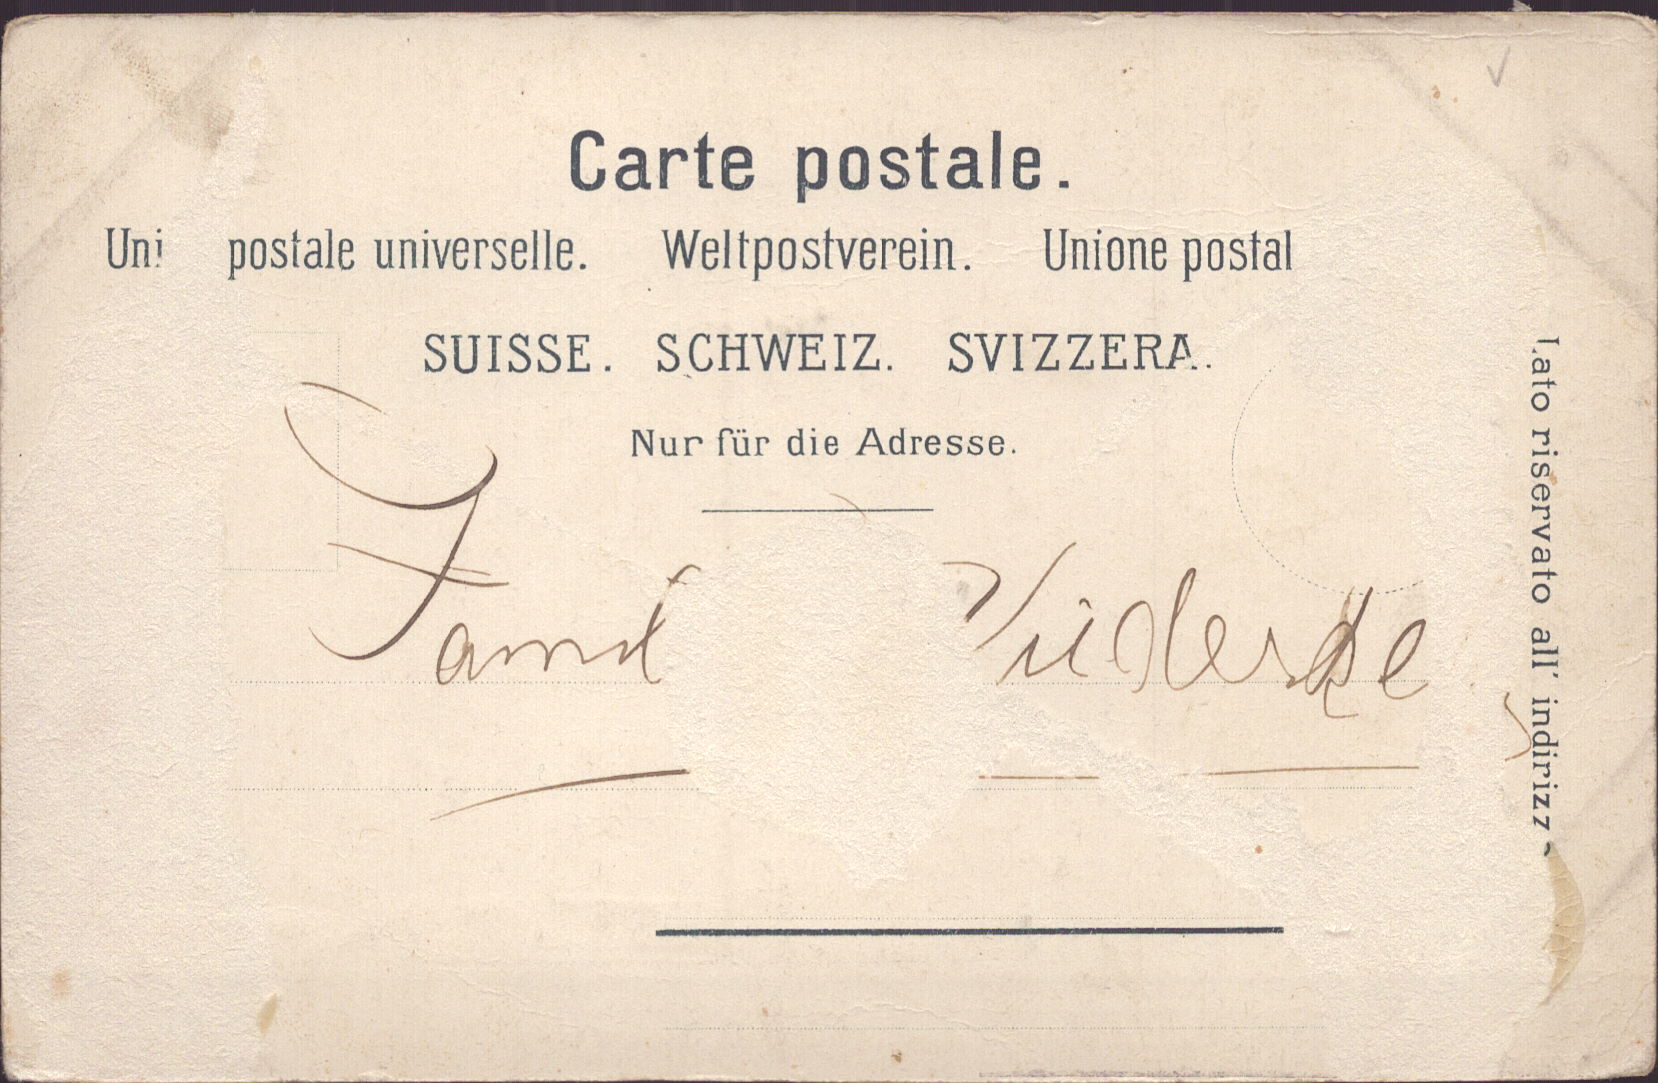 Carte postale.
Uni postale universelle. Weltpostverein. Unione postal
SUISSE. SCHWEIZ. SVIZZERA.
Nur für die Adresse.
Lato riservato all' indirizz